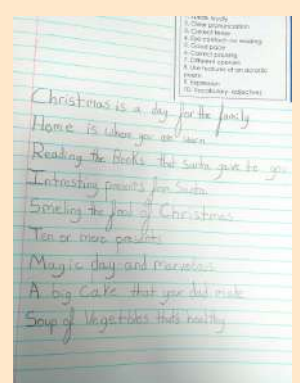 1. Speak loudly
2. Clear pronunciation
3. Correct tense
4. Eye contact - no reading
5. Good pace
6. Correct pausing
7. Different openers
8. Use features of an acrostic
poem
9. Expression
10. Vocabulary - adjectives
Christmas is a day for the family
Home is where you are
Reading the Books that santa gave to you
Intresting presents from Santa
Smeling the food of Christmas
Ten or more presents
Magic day and marvelous
A big Cake that your dad made
Soup of Vegetbles thats healthy